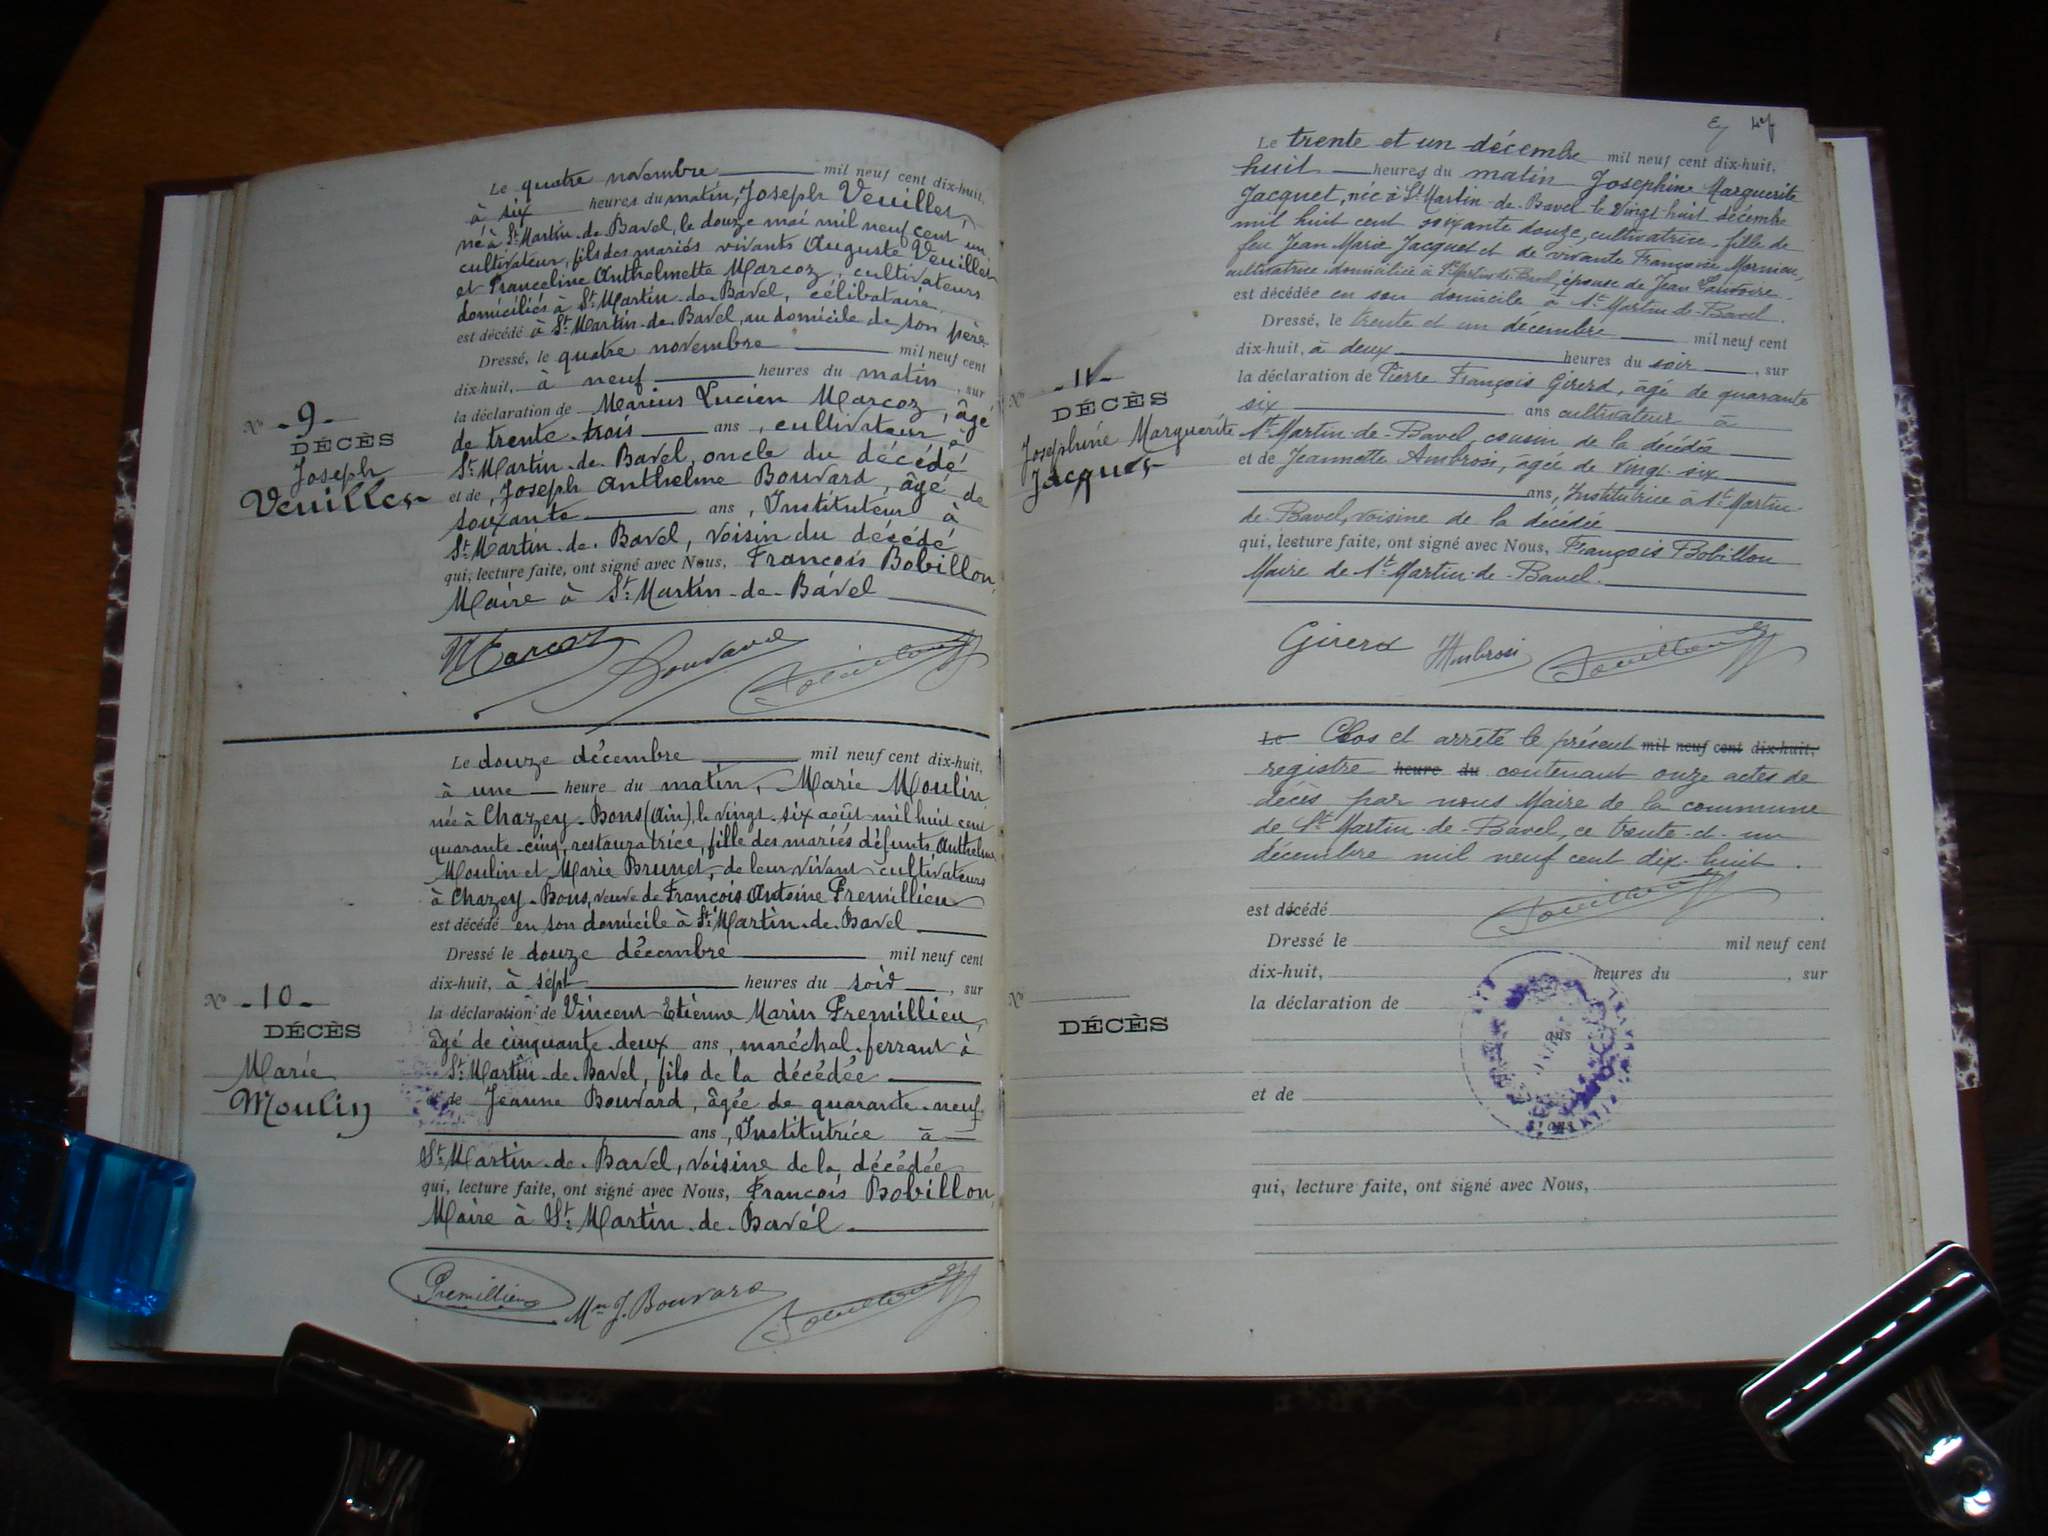 Le quatre novembre mil neuf cent dix-huit,
à six heures du matin, Joseph Veuillet,
né à St Martin-de-Bavel, le douze mai mil neuf cent un
cultivateur, fils des mariés vivants Auguste Veuillet
et Franceline Anthelmette Marcoz, cultivateurs
domiciliés à St Martin-de-Bavel, célibataire
est décédé à St Martin-de-Bavel, au domicile de son père
Dressé, le quatre novembre mil neuf cent
dix-huit, à neuf heures du matin, sur
la déclaration de Marius Lucien Marcoz, âgé
de trente-trois ans, cultivateur à
St Martin-de-Bavel, oncle du décédé
et de Joseph Anthelme Bouvard, âgé de
soixante ans, Instituteur à
St Martin-de-Bavel, voisin du décédé
qui, lecture faite, ont signé avec Nous, François Bobillon,
Maire à St Martin-de-Bavel
No -9-
DÉCÈS
Joseph
Veuillet
Marcoz Bouvard Bobillon
Le douze décembre mil neuf cent dix-huit,
à une heure du matin, Marie Moulin
née à Chazey-Bons (Ain), le vingt-six août mil huit cent
quarante-cinq, restauratrice, fille des mariés défunts Anthelme
Moulin et Marie Brunet, de leur vivant cultivateurs
à Chazey-Bons, veuve de François Antoine Premillieu
est décédé en son domicile à St Martin-de-Bavel
Dressé le douze décembre mil neuf cent
dix-huit, à sept heures du soir, sur
la déclaration de Vincent Etienne Marin Premillieu,
âgé de cinquante-deux ans, maréchal-ferrant à
St Martin-de-Bavel, fils de la décédée
et de Jeanne Bouvard, âgée de quarante-neuf
ans, Institutrice à
St Martin-de-Bavel, voisine de la décédée
qui, lecture faite, ont signé avec Nous, François Bobillon,
Maire à St Martin-de-Bavel.
No -10-
DÉCÈS
Marie
Moulin
Premillieu Mme J. Bouvard Bobillon
Le trente et un décembre mil neuf cent dix-huit,
huit heures du matin Josephine Marguerite
Jacquet, née à St Martin-de-Bavel le vingt-huit décembre
mil huit cent soixante douze, cultivatrice, fille de
feu Jean Marie Jacquet et de vivante Françoise
cultivatrice domiciliée à St Martin-de-Bavel, épouse de Jean
est décédée en son domicile à St Martin-de-Bavel.
Dressé, le trente et un décembre mil neuf cent
dix-huit, à deux heures du soir, sur
la déclaration de Pierre François Girerd, âgé de quarante
six ans cultivateur à
St Martin-de-Bavel, cousin de la décédée
et de Jeannette Ambrosi, âgée de vingt-six
ans, Institutrice à St Martin-
de-Bavel, voisine de la décédée
qui, lecture faite, ont signé avec Nous, François Bobillon
Maire de St Martin-de-Bavel.
No -11-
DÉCÈS
Josephine Marguerite
Jacquet
Girerd Ambrosi Bobillon
Le Clos et arrêté le présent mil neuf cent dix-huit,
registre heure du contenant onze actes de
décès par nous Maire de la commune
de St Martin-de-Bavel, ce trente-et-un
décembre mil neuf cent dix-huit.
Bobillon
est décédé
Dressé le mil neuf cent
dix-huit, heures du , sur
la déclaration de
ans
No
DÉCÈS
et de
ans
qui, lecture faite, ont signé avec Nous,